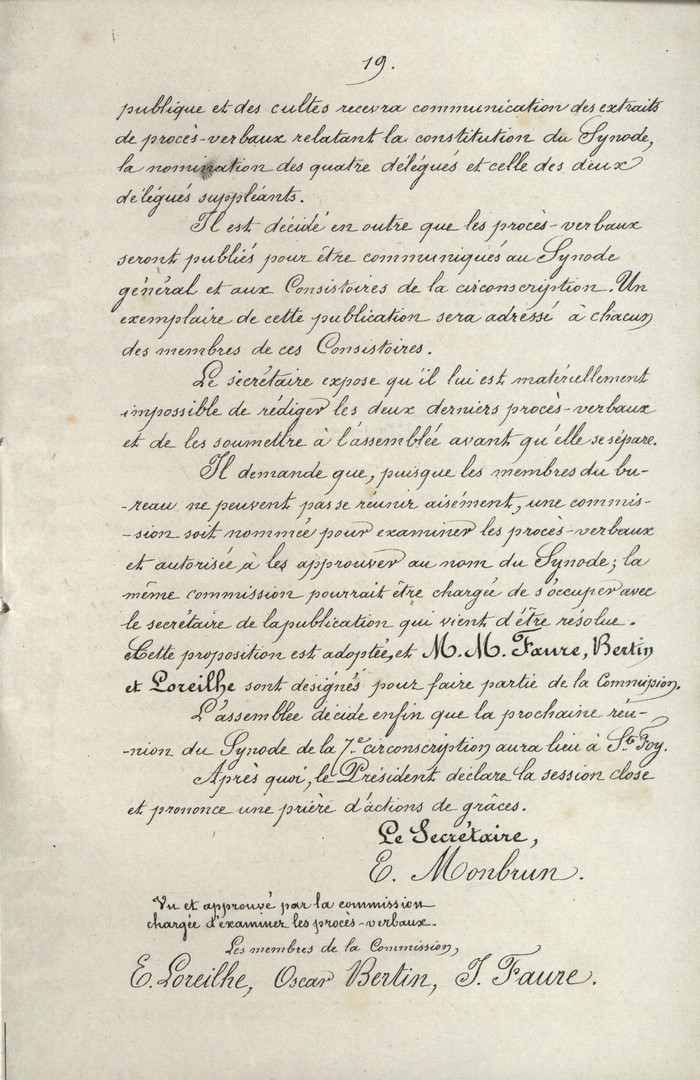 19.
publique et des cultes recevra communication des extraits
de procès-verbaux relatant la constitution du Synode,
la nomination des quatre délégués et celle des deux
délégués suppléants.
Il est décidé en outre que les procès-verbaux
seront publiés pour être communiqués au Synode
général et aux Consistoires de la circonscription. Un
exemplaire de cette publication sera adressé à chacun
des membres de ces Consistoires.
Le secrétaire expose qu'il lui est matériellement
impossible de rédiger les deux derniers procès-verbaux
et de les soumettre à l'assemblée avant qu'elle se sépare.
Il demande que, puisque les membres du bu-
-reau ne peuvent pas se réunir aisément, une commis-
-sion soit nommée pour examiner les procès-verbaux
et autorisée à les approuver au nom du Synode; la
même commission pourrait être chargée de s'occuper avec
le secrétaire de la publication qui vient d'être résolue.
Cette proposition est adoptée, et M. M. Faure, Bertin
et Loreilhe sont désignés pour faire partie de la Commission.
L'assemblée décide enfin que la prochaine réu-
-nion du Synode de la 7.e circonscription aura lieu à Ste Foy.
Après quoi, le Président déclare la session close
et prononce une prière d'actions de grâces.
Le Secrétaire,
E. Monbrun.
Vu et approuvé par la commission
chargée d'examiner les procès-verbaux.
Les membres de la Commission,
E. Loreilhe, Oscar Bertin, J. Faure.